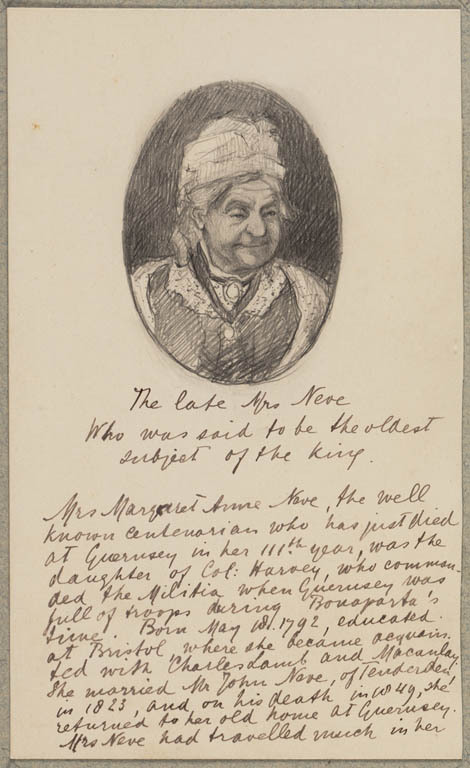 The late Mrs Neve
Who was said to be the oldest
subject of the King.
Mrs Margaret Anne Neve, the well
known centenarian who has just died
at Guernsey in her 111th year, was the
daughter of Col: Harvey, who comman-
ded the Militia when Guernsey was
full of troops during Bonaparte's
time. Born May 18. 1792, educated
at Bristol, where she became acquain-
ted with Charles Lamb and Macaulay.
She married Mr John Neve, of Tenderden
in 1823, and, on his death in 1849, she
returned to her old home at Guernsey.
Mrs Neve had travelled much in her